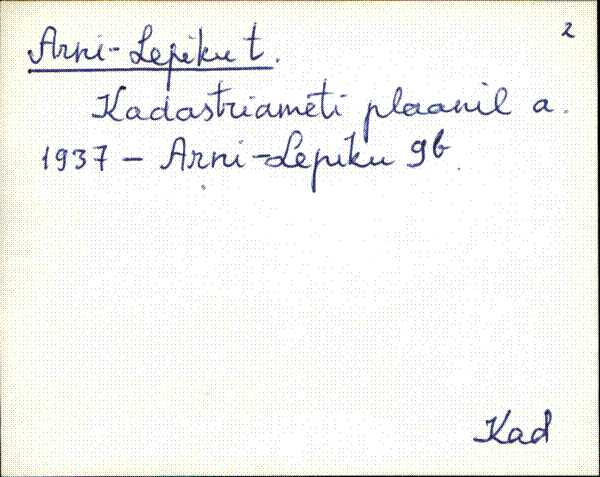 2
Arni-Lepiku t.
Kadastriameti plaanil a.
1937 – Arni-Lepiku 9b.
Kad